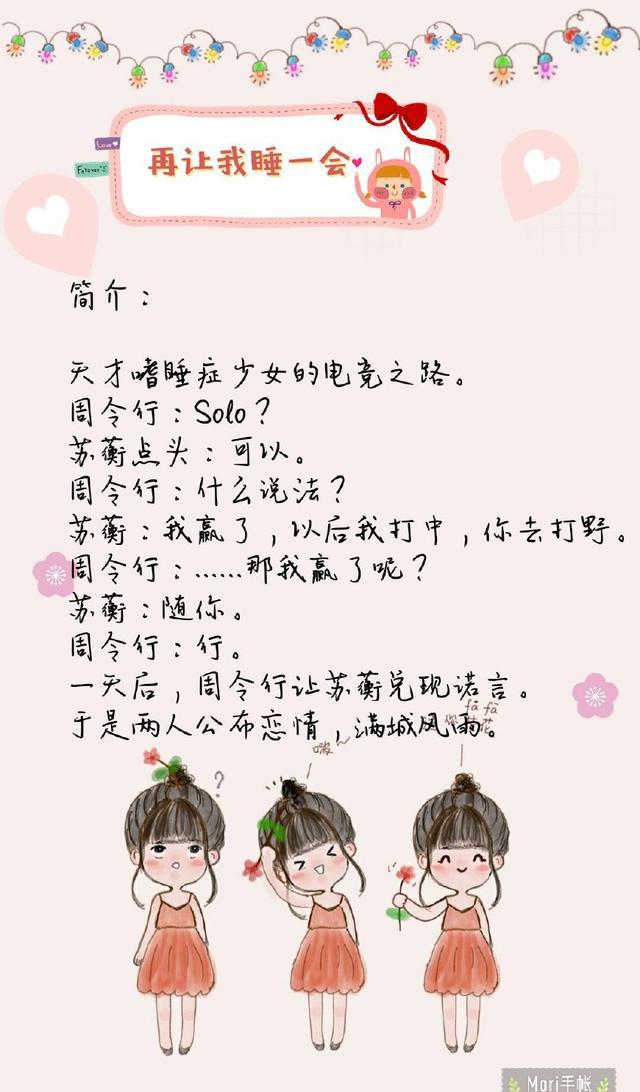 Love
Forever
再让我睡一会
简介：
天才嗜睡症少女的电竞之路。
周令行：Solo？
苏蘅点头：可以。
周令行：什么说法？
苏蘅：我赢了，以后我打中，你去打野。
周令行：……那我赢了呢？
苏蘅：随你。
周令行：行。
一天后，周令行让苏蘅兑现诺言。
fā fā
于是两人公布恋情，满城风雨。
?
Mori手帐